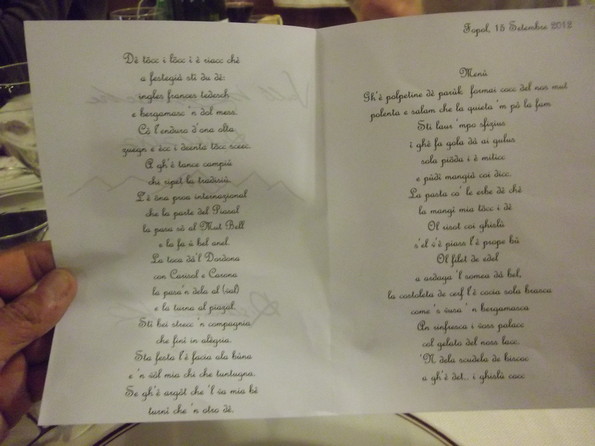 Dè töcc i löcc i è riacc chè
a festegià sti du dè:
ingles frances tedesch
e bergamasc 'n dol mess.
Cö l'enduro d'öna olta
zuègn e ècc i deènta töcc sciec.
A gh'è tance compiù
chi ripet la tradisiù.
L'è öna proa internazional
che la parte del Piasal
la pasa sö al Mut Bell
e la fa ü bel anel.
La toca dà'l Dordona
con Carisol e Carona
la pasa'n dela al (val)
e la turna al piazal.
Sti bei strecc 'n compagnia
che finì in alègria.
Sta festa l'è facia ala büna
e 'n völ mia chi che tantugna.
Se gh'è argöt che 'l va mia bè
turnì che 'n otro dè.
Fopol, 15 Setembre 2012
Menù
Gh'è polpetine dè parük formai cocc del nos mut
polenta e salam che la quieta 'm pò la fam
Sti laur 'mpo sfizius
i ghè fa gola dà ai gulus
sola piödu i è miticc
e pödì mangià coi dicc.
La pasta co' le erbe dè chè
la mangì mia töcc i dè
Ol risot coi ghislù
s'el v'è piass l'è prope bù
Ol filet de edel
a ardaga 'l somea dà bel,
la costoleta de cerf l'è cocia sola brasca
come 's üasa 'n bergamasca
An sinfresca i voss palacc
col gelato del noss lacc.
'N dela scudela de biscoc
a gh'è det.. i ghislù cocc